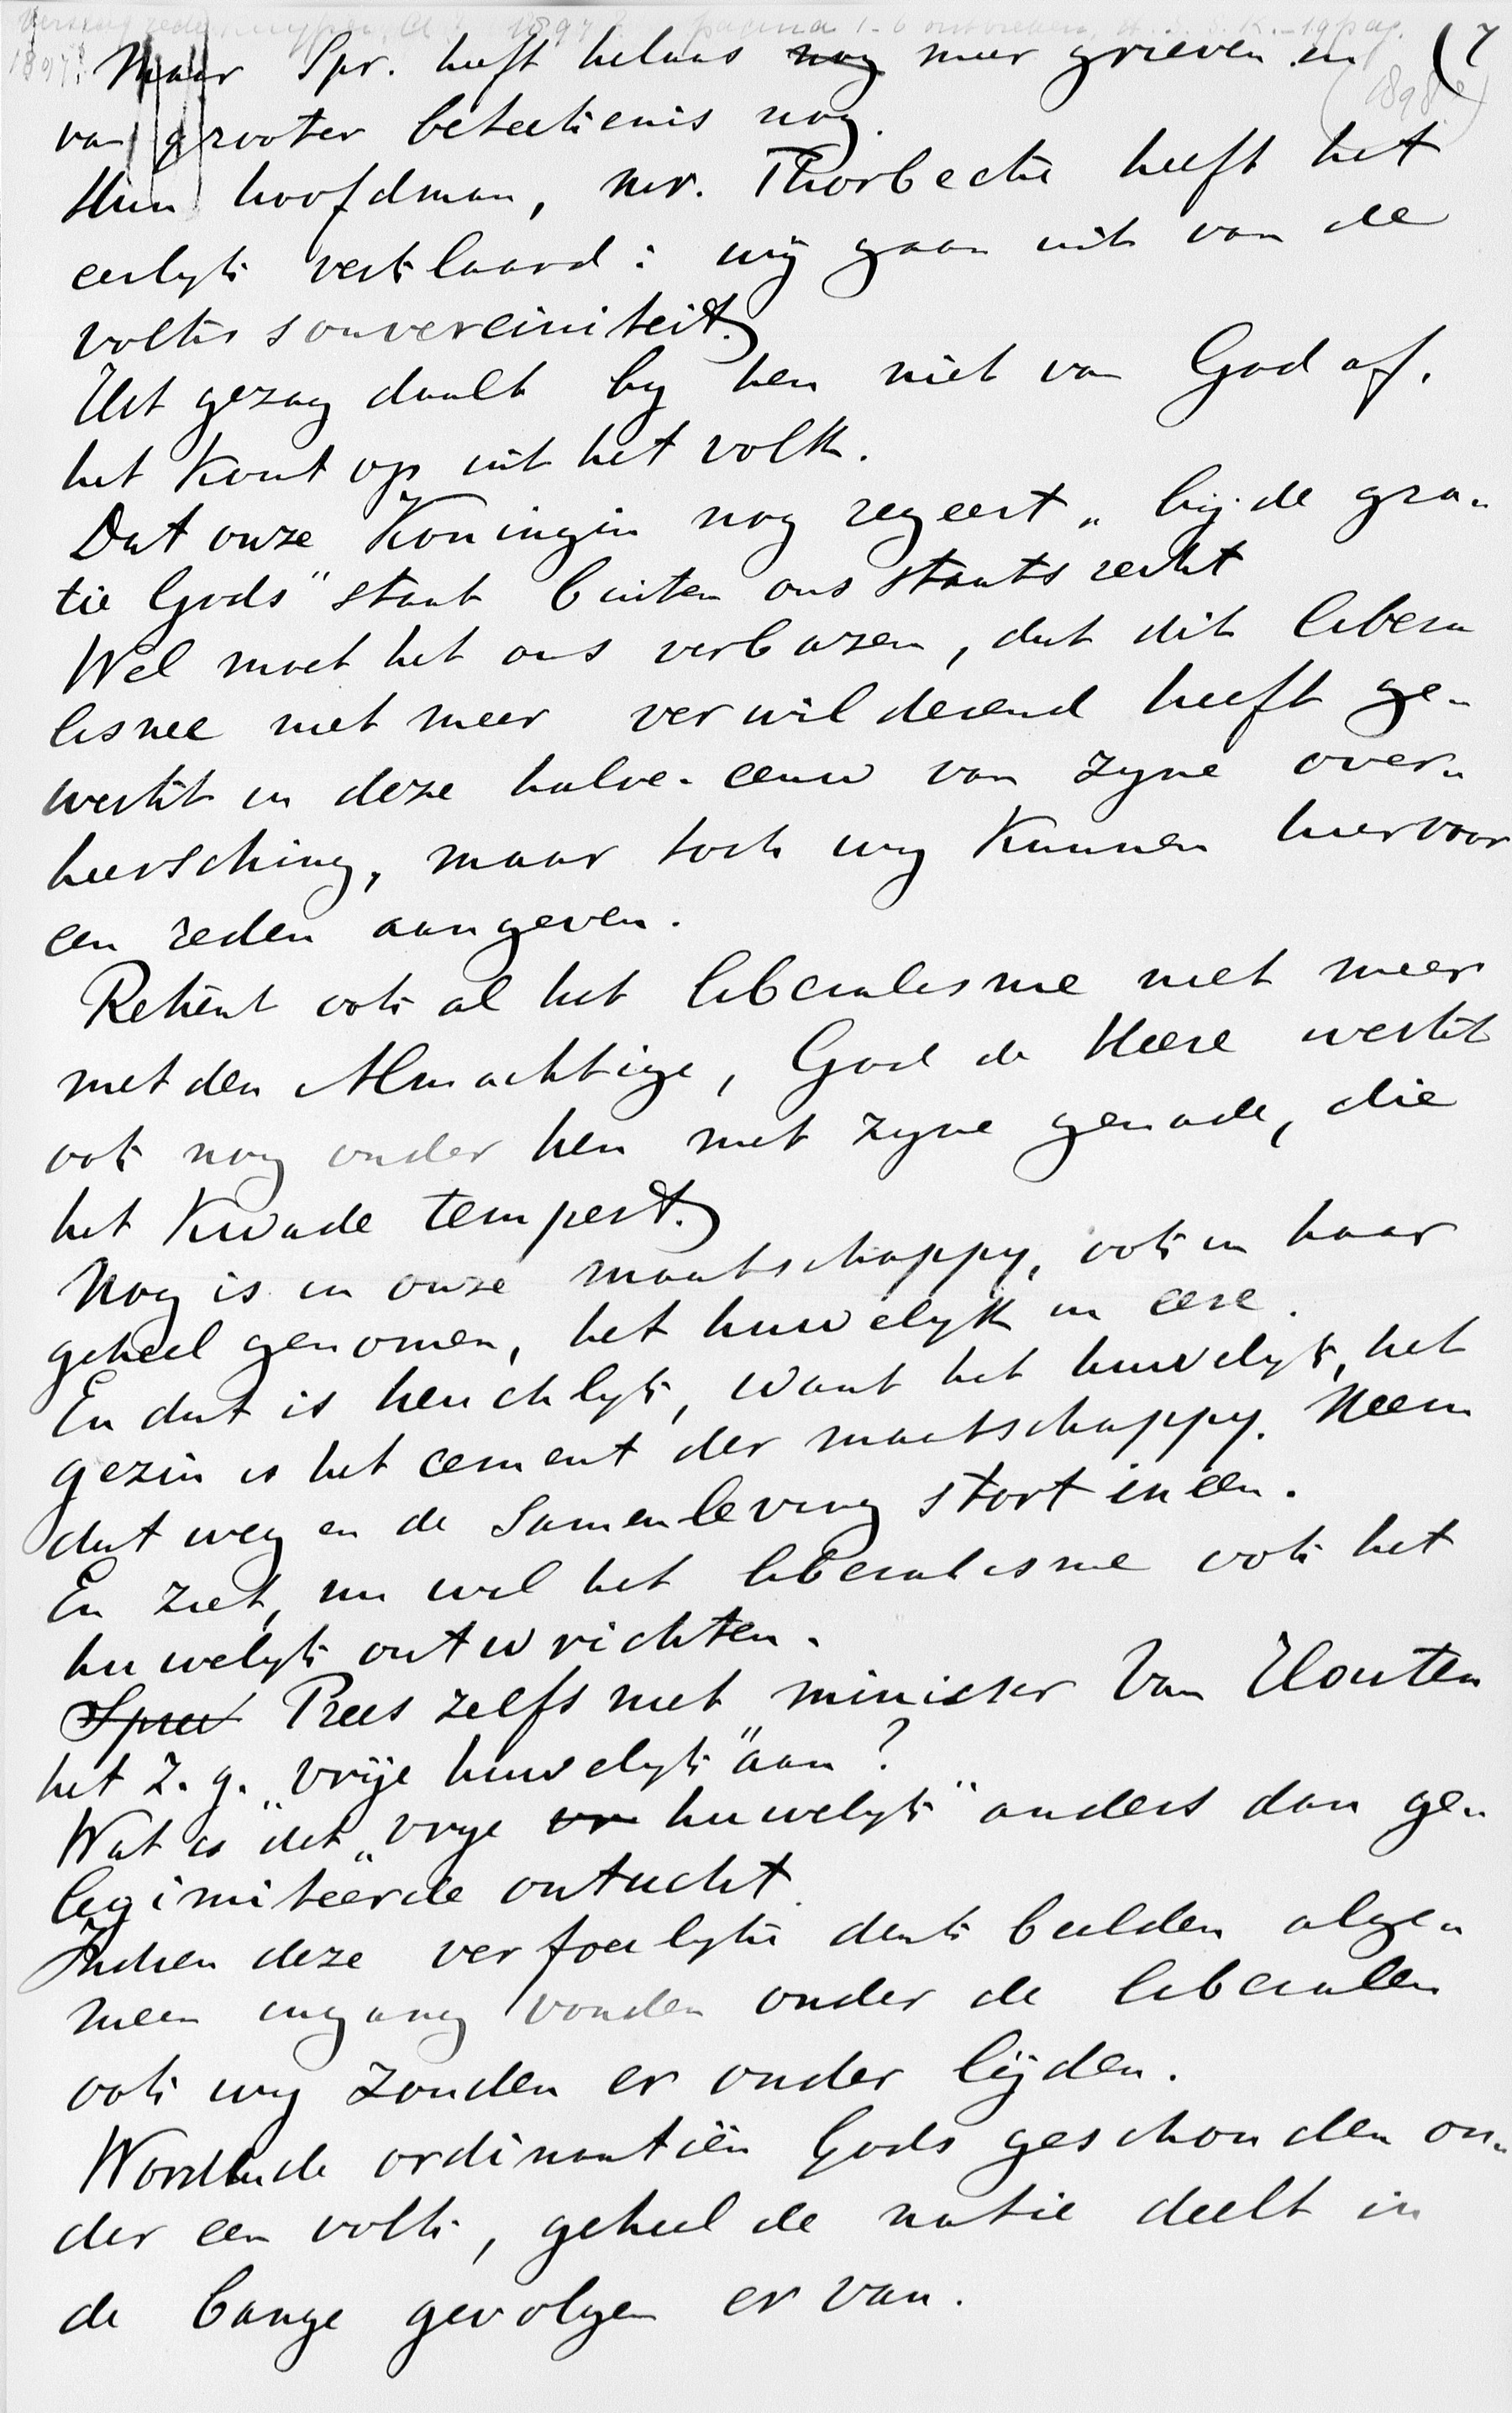 Verslag rede Kuyper, 1897? pagina 1-6 ontbreken, 19 pag.
1897?
(1898?)
Maar Spr. heeft helaas nog meer grieven en (7
van grooter beteekenis nog.
Hun hoofdman, mr. Thorbecke heeft het
eerlyk verklaard: wij gaan uit van de
volkssouvereiniteit.
Het gezag daalt by hen niet van God af,
het komt op uit het volk.
Dat onze Koningin nog regeert „bij de gra-
tie Gods" staat buiten ons staatsrecht
Wel moet het ons verbazen, dat dit libera
lisme niet meer verwilderend heeft ge-
werkt in deze halve-eeuw van zyne over-
heersching, maar toch wy kunnen hiervoor
een reden aangeven.
Rekent ook al het liberalisme niet meer
met den Almachtige, God de Heere werkt
ook nog onder hen met zyne genade, die
het kwade tempert.
Nog is in onze maatschappy, ook in haar
geheel genomen, het huwelyk in eere.
En dat is heuchlyk, want het huwelyk, het
gezin is het cement der maatschappy. Neem
dat weg en de samenleving stort ineen.
En ziet, nu wil het liberalisme ook het
huwelyk ontwrichten.
Spree Prees zelfs niet minister Van Houten
het z.g. „vrije huwelyk" aan?
Wat is dit „vrye vr huwelyk" anders dan ge-
legimiteerde ontucht.
Indien deze verfoeilyke denkbeelden alge-
meen ingang vonden onder de liberalen
ook wy zouden er onder lijden.
Worden de ordinantiën Gods geschonden on-
der een volk, geheel de natie deelt in
de bange gevolgen er van.